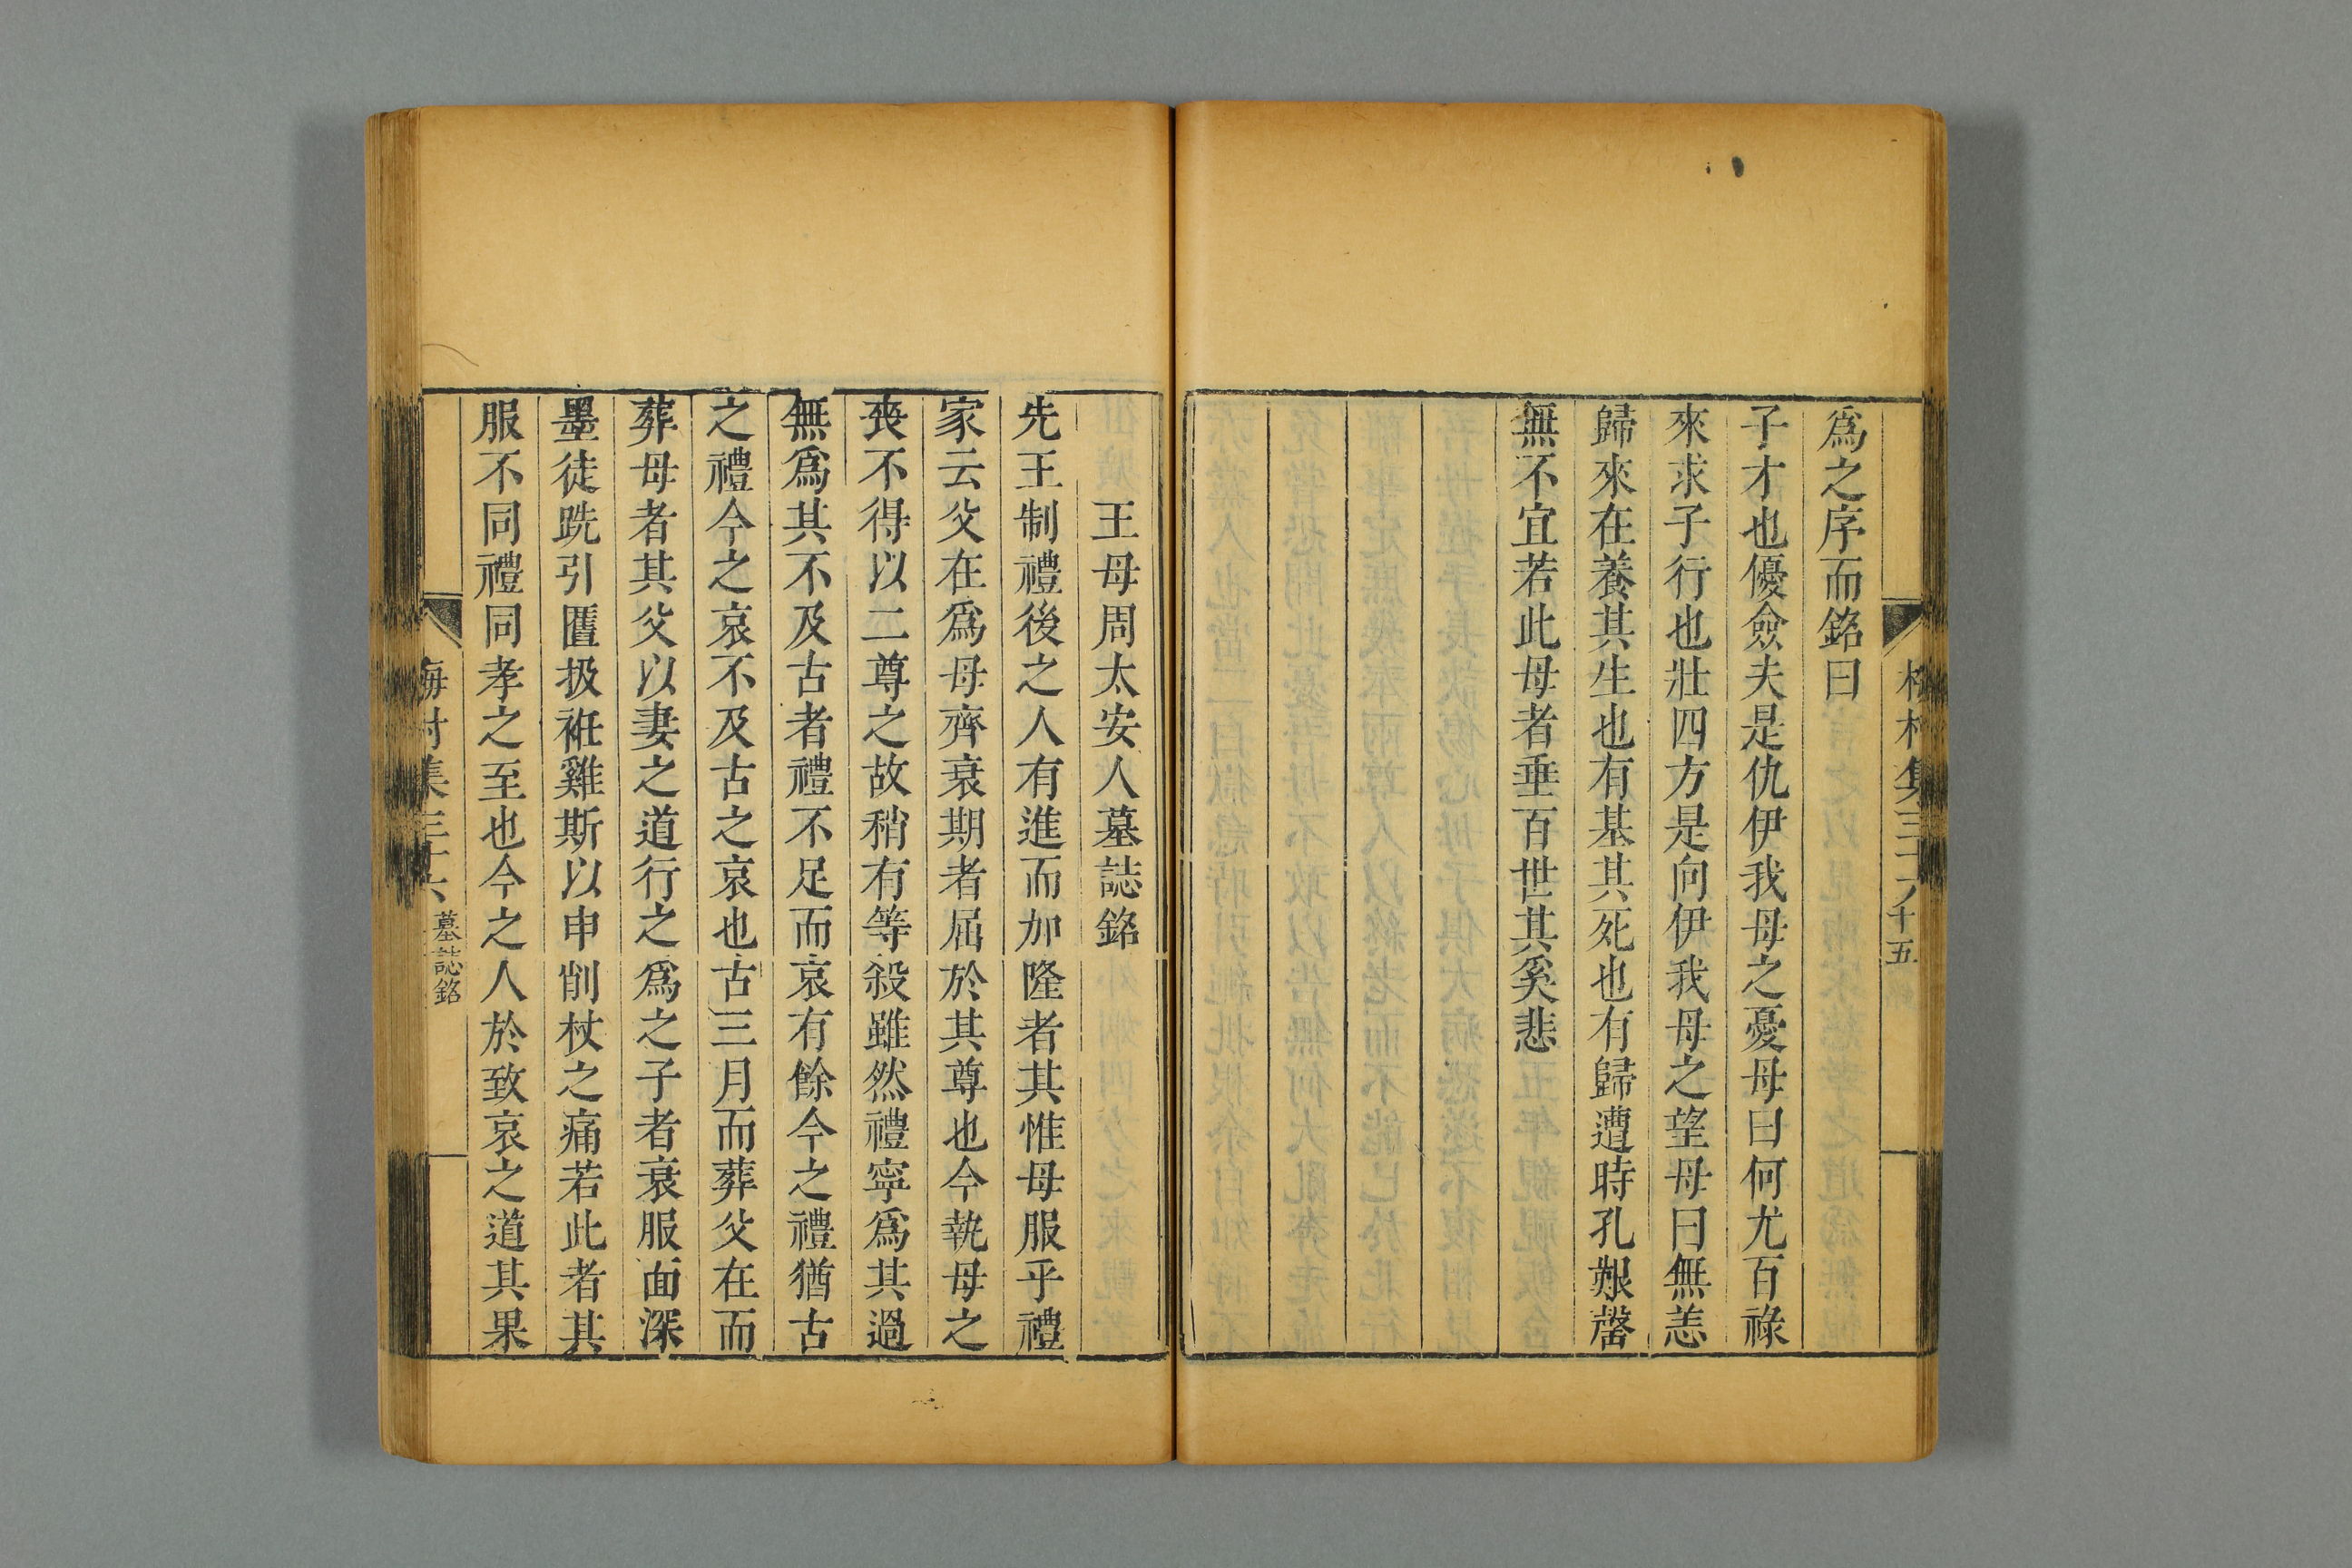 爲之序而銘曰
子才也優僉夫是仇伊我母之憂母曰何尤百祿
來求子行也壯四方是向伊我母之望母曰無恙
歸來在養其生也有基其死也有歸遭時孔艱罄
無不宜若此母者垂百世其奚悲
十五
王母周太安人墓誌銘
先王制禮後之人有進而加隆者其惟母服乎禮
家云父在爲母齊衰期者屈於其尊也今執母之
喪不得以二尊之故稍有等殺雖然禮寧爲其過
無爲其不及古者禮不足而哀有餘今之禮猶古
之禮今之哀不及古之哀也古三月而葬父在而
葬母者其父以妻之道行之爲之子者衰服面深
墨徒跣引匶扱衽雞斯以申削杖之痛若此者其
服不同禮同孝之至也今之人於致哀之道其果
墓誌銘